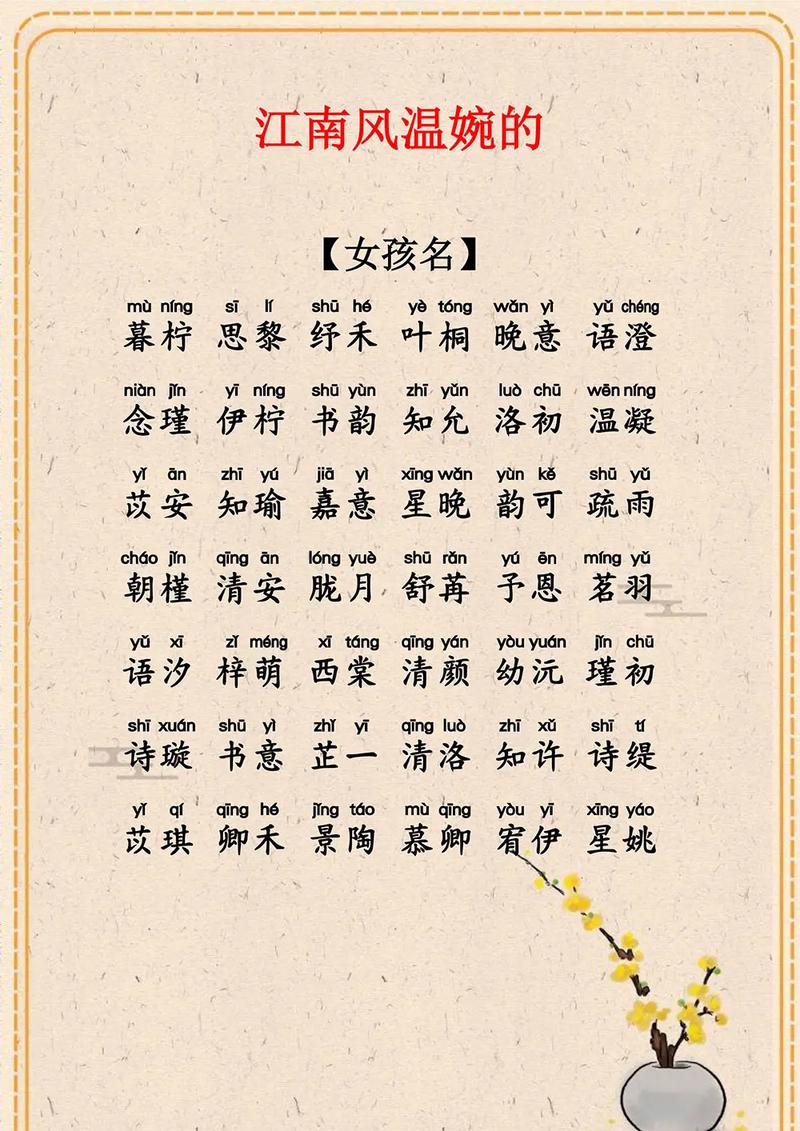 江南风温婉的
【女孩名】
mù níng sī lí shū hé yè tóng wǎn yì yǔ chéng
暮柠 思黎 纾禾 叶桐 晚意 语澄
niàn jǐn yī níng shū yùn zhī yǔn luò chū wēn níng
念瑾 伊柠 书韵 知允 洛初 温凝
yǐ ān zhī yú jiā yì xīng wǎn yùn kě shū yǔ
苡安 知瑜 嘉意 星晚 韵可 疏雨
cháo jǐn qīng ān lóng yuè shū rǎn yú ēn míng yǔ
朝槿 清安 胧月 舒苒 予恩 茗羽
yǔ xī zǐ méng xī táng qīng yán yòu yuán jǐn chū
语汐 梓萌 西棠 清颜 幼沅 瑾初
shī xuán shū yì zhǐ yī qīng luò zhī xǔ shī tí
诗璇 书意 芷一 清洛 知许 诗缇
yǐ qí qīng hé jǐng táo mù qīng yòu yī xīng yáo
苡琪 卿禾 景陶 慕卿 宥伊 星姚